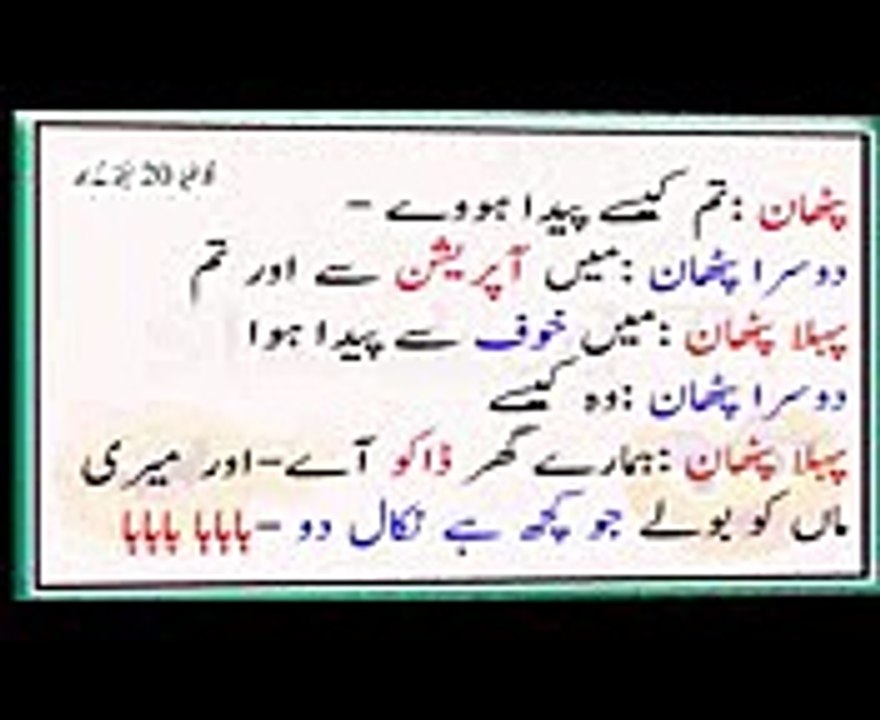 پٹھان :تم کیسے پیدا ہووے -
دوسرا پٹھان :میں آپریشن سے اور تم
پہلا پٹھان :میں خوف سے پیدا ہوا
دوسرا پٹھان :وہ کیسے
پہلا پٹھان :ہمارے گھر ڈاکو آے-اور میری
ماں کو بولے جو کچھ ہے نکال دو -ہاہاہا ہاہاہا
20